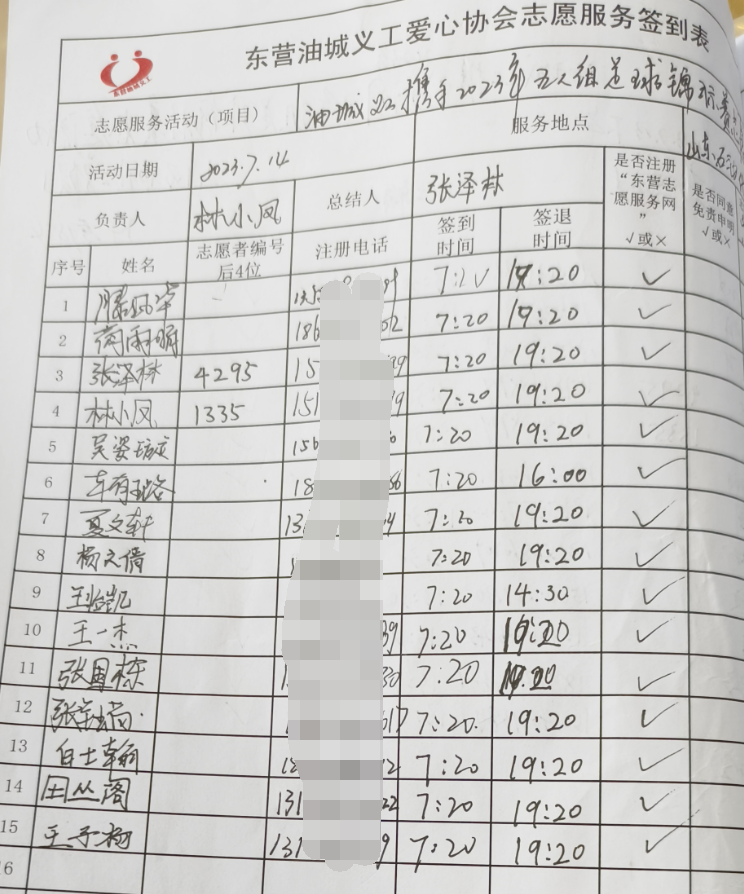 东营油城义工爱心协会志愿服务签到表
东营油城义工
志愿服务活动（项目） 油城义工携手2023年五人组足球锦标赛
活动日期 2023.7.14 服务地点 山东石
负责人 林小凤 总结人 张泽林 是否注册“东营志愿服务网” √或× 是否同意免责申明 √或×
序号 姓名 志愿者编号后4位 注册电话 签到时间 签退时间
1 7:20 19:20 ✓
2 186 7:20 19:20 ✓
3 张泽林 4295 15 7:20 19:20 ✓
4 林小凤 1335 151 7:20 19:20 ✓
5 150 7:20 19:20 ✓
6 18 7:20 16:00 ✓
7 夏文轩 13 7:20 19:20 ✓
8 杨文倩 7:20 19:20 ✓
9 7:20 14:30 ✓
10 王一杰 39 7:20 ✓
11 张国栋 7:20 ✓
12 17 7:20 19:20 ✓
13 白士翰 7:20 19:20 ✓
14 田丛阁 131 22 7:20 19:20 ✓
15 131 9 7:20 19:20 ✓
16